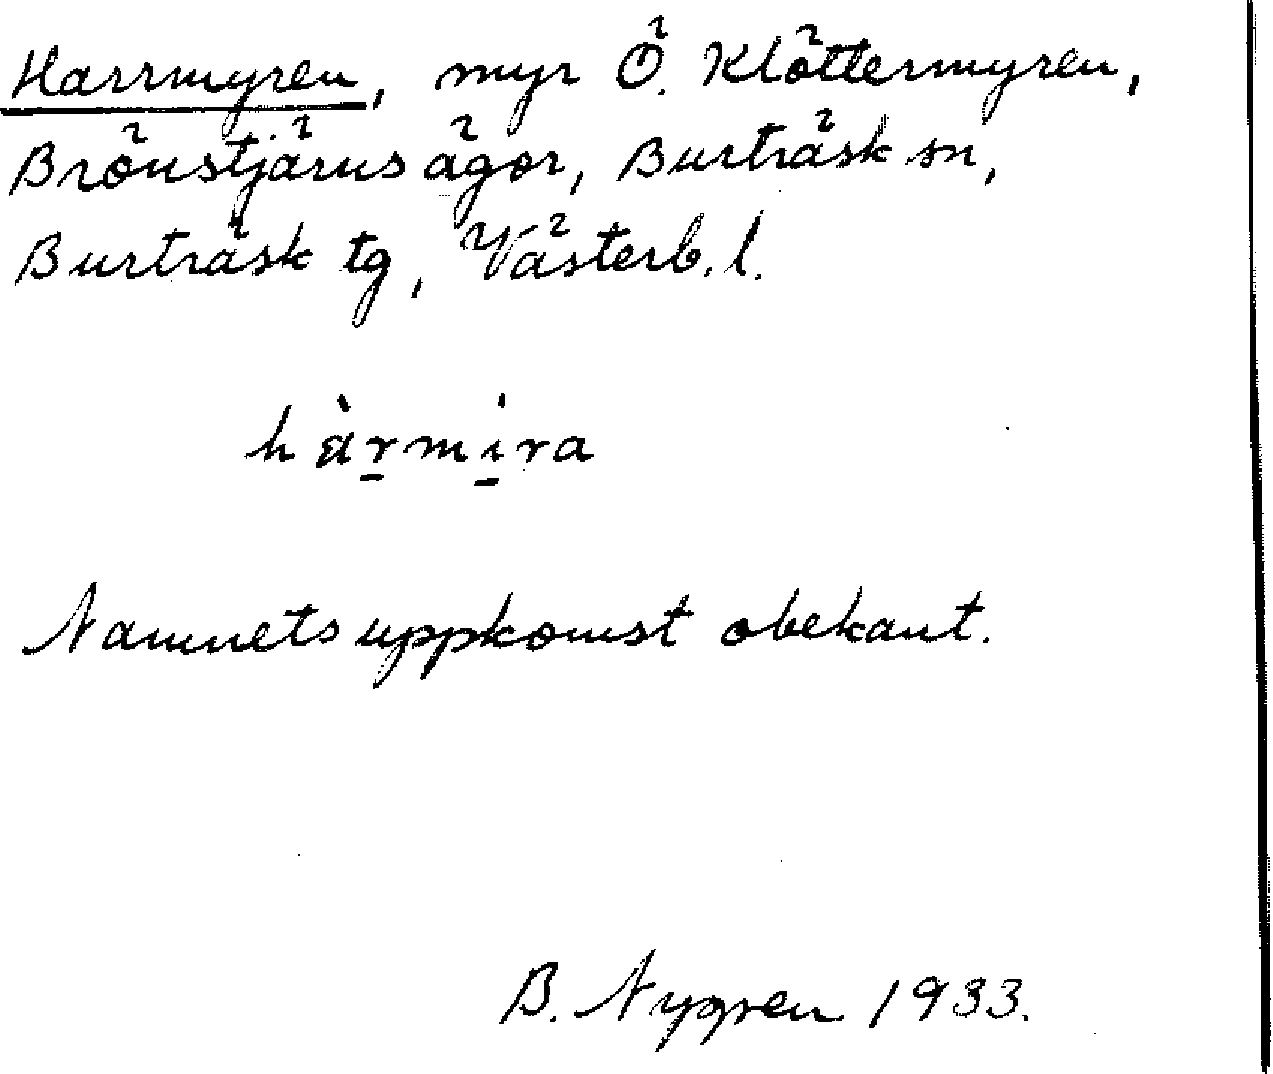 Harrmyren, myr Ö. Klöttermyren,
Brönstjärns ägor, Burträsk sn,
Burträsk tg, Västerb. l.
hàr̠mi̠ra
Namnets uppkomst obekant.
B. Nygren 1933.